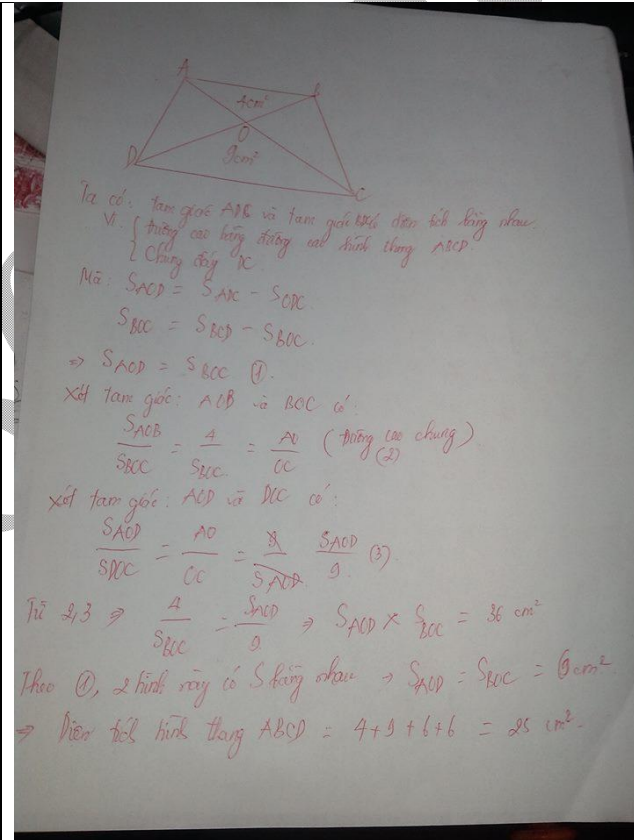 A B
4cm²
O
D 9cm²
C
Ta có: tam giác ADB và tam giác có diện tích bằng nhau
Vì { Đường cao bằng đường cao hình thang ABCD.
{ Chung đáy DC.
Mà: S_AOD = S_ADC - S_ODC.
S_BOC = S_BCD - S_BOC.
=> S_AOD = S_BOC ①.
Xét tam giác: AOB và BOC có:
S_AOB / S_BOC = 4 / S_BOC = AO / OC (Đường cao chung) (2)
Xét tam giác: AOD và DOC có:
S_AOD / S_DOC = AO / OC = S_AOD / 9 (3)
Từ 2,3 => 4 / S_BOC = S_AOD / 9 => S_AOD × S_BOC = 36 cm²
Theo ①, 2 hình này có S bằng nhau → S_AOD = S_BOC = 6cm²
=> Diện tích hình thang ABCD = 4+9+6+6 = 25 cm².